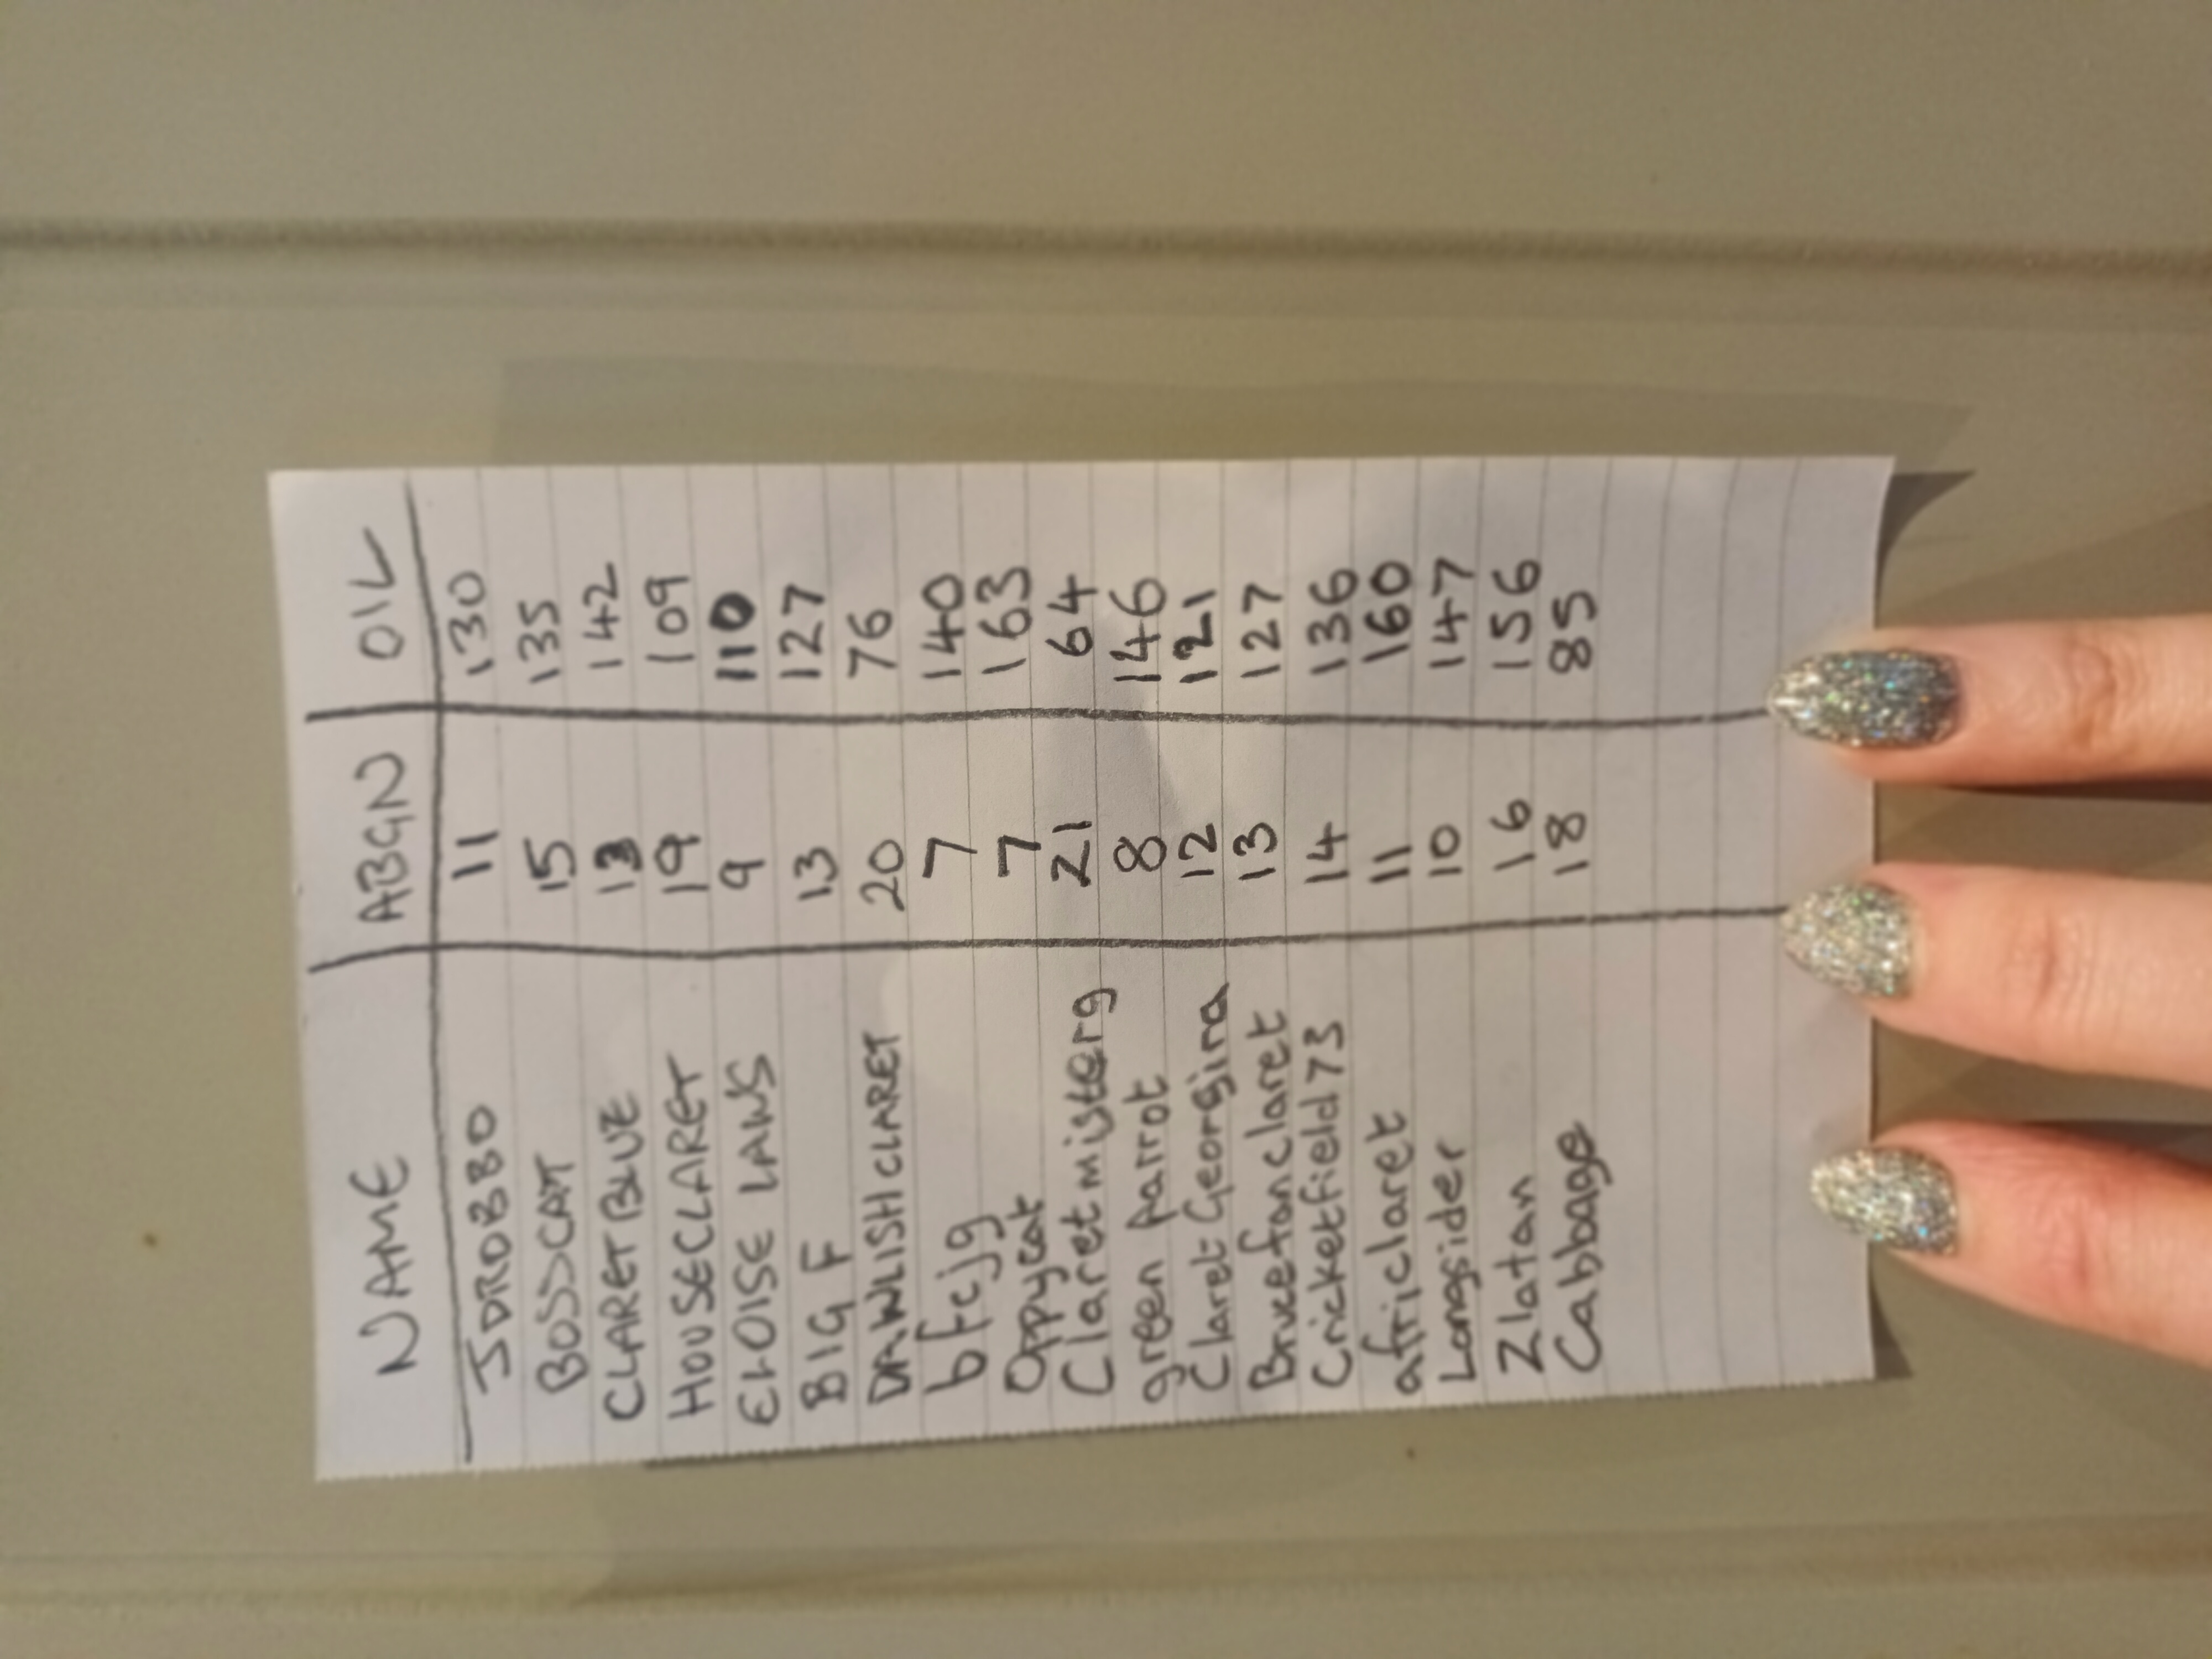 NAME ABGN OIL
JDROBBO 11 130
BOSSCAT 15 135
CLARET BLUE 13 142
HOUSECLARET 19 109
ELOISE LAWS 9 110
BIG F 13 127
DAWLISH CLARET 20 76
bfcjg 7 140
Oppycat 7 163
Claretmisterg 21 64
green parrot 8 146
Claret Georgina 12 121
Brucefanclaret 13 127
Cricketfield73 14 136
africlaret 11 160
Longsider 10 147
Zlatan 16 156
Cabbage 18 85